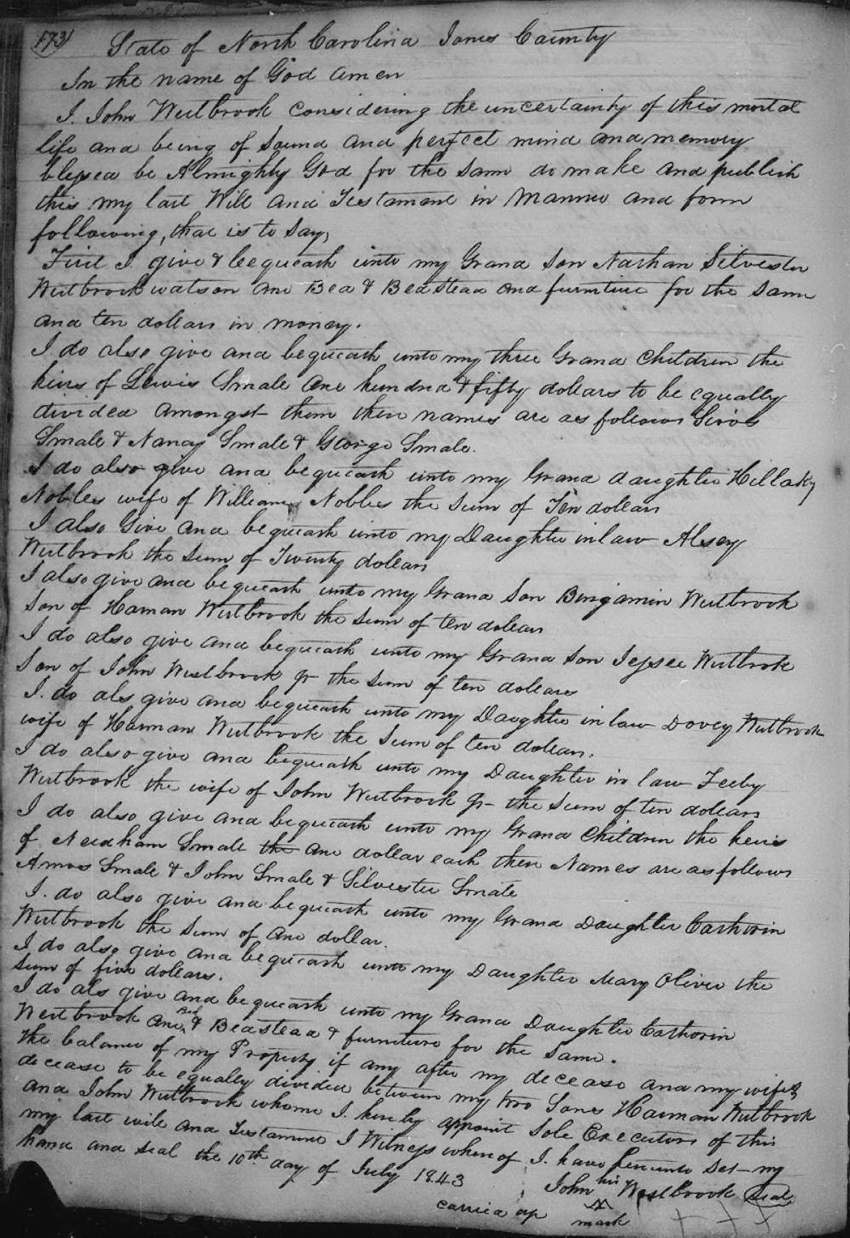 173
State of North Carolina Jones County
In the name of God Amen
I. John Westbrook considering the uncertainty of this mortal
life and being of sound and perfect mind and memory
blessed be Almighty God for the same do make and publish
this my last Will and Testament in manner and form
following, that is to say,
First I give & bequeath unto my Grand Son Nathan Silvester
Westbrook watson one Bed & Beadstead and furniture for the same
and ten dollars in money.
I do also give and bequeath unto my three Grand Children the
heirs of Lewis Smale one hundred & fifty dollars to be equally
divided amongst them their names are as follows
Smale & Nancy Smale & George Smale.
I do also give and bequeath unto my Grand daughter Hillaky
Nobles wife of William Nobles the Sum of Ten dollars
I also Give and bequeath unto my Daughter in law Alsey
Westbrook the Sum of Twenty dollars
I also give and bequeath unto my Grand Son Benjamin Westbrook
Son of Haman Westbrook the Sum of ten dollars
I do also give and bequeath unto my Grand Son Jessee Westbrook
Son of John Westbrook Jr the Sum of ten dollars
I. do als give and bequeath unto my Daughter in law Dovey Westbrook
wife of Harman Westbrook the Sum of ten dollars.
I do also give and bequeath unto my Daughter in law Feeby
Westbrook the wife of John Westbrook Jr the Sum of ten dollars
I do also give and bequeath unto my Grand Children the heirs
of Needham Smale the one dollar each there Names are as follows
Amos Smale & John Smale & Silvester Smale
I. do also give and bequeath unto my Grand Daughter Cathorin
Westbrook the Sum of one dollar.
I do also give and bequeath unto my Daughter Mary Oliver the
Sum of five dollars.
I do als give and bequeath unto my Grand Daughter Cathorin
Westbrook one Bed & Beadstead & furniture for the same.
The balance of my Property if any after my decease and my wifes
decease to be equally divided between my two Sons Harman Westbrook
and John Westbrook whome I hereby appoint Sole Executors of this
my last will and Testament I Witness whereof I. have hereunto Set my
hand and seal the 10th day of July 1843
John his Westbrook seal
carried up
X
mark